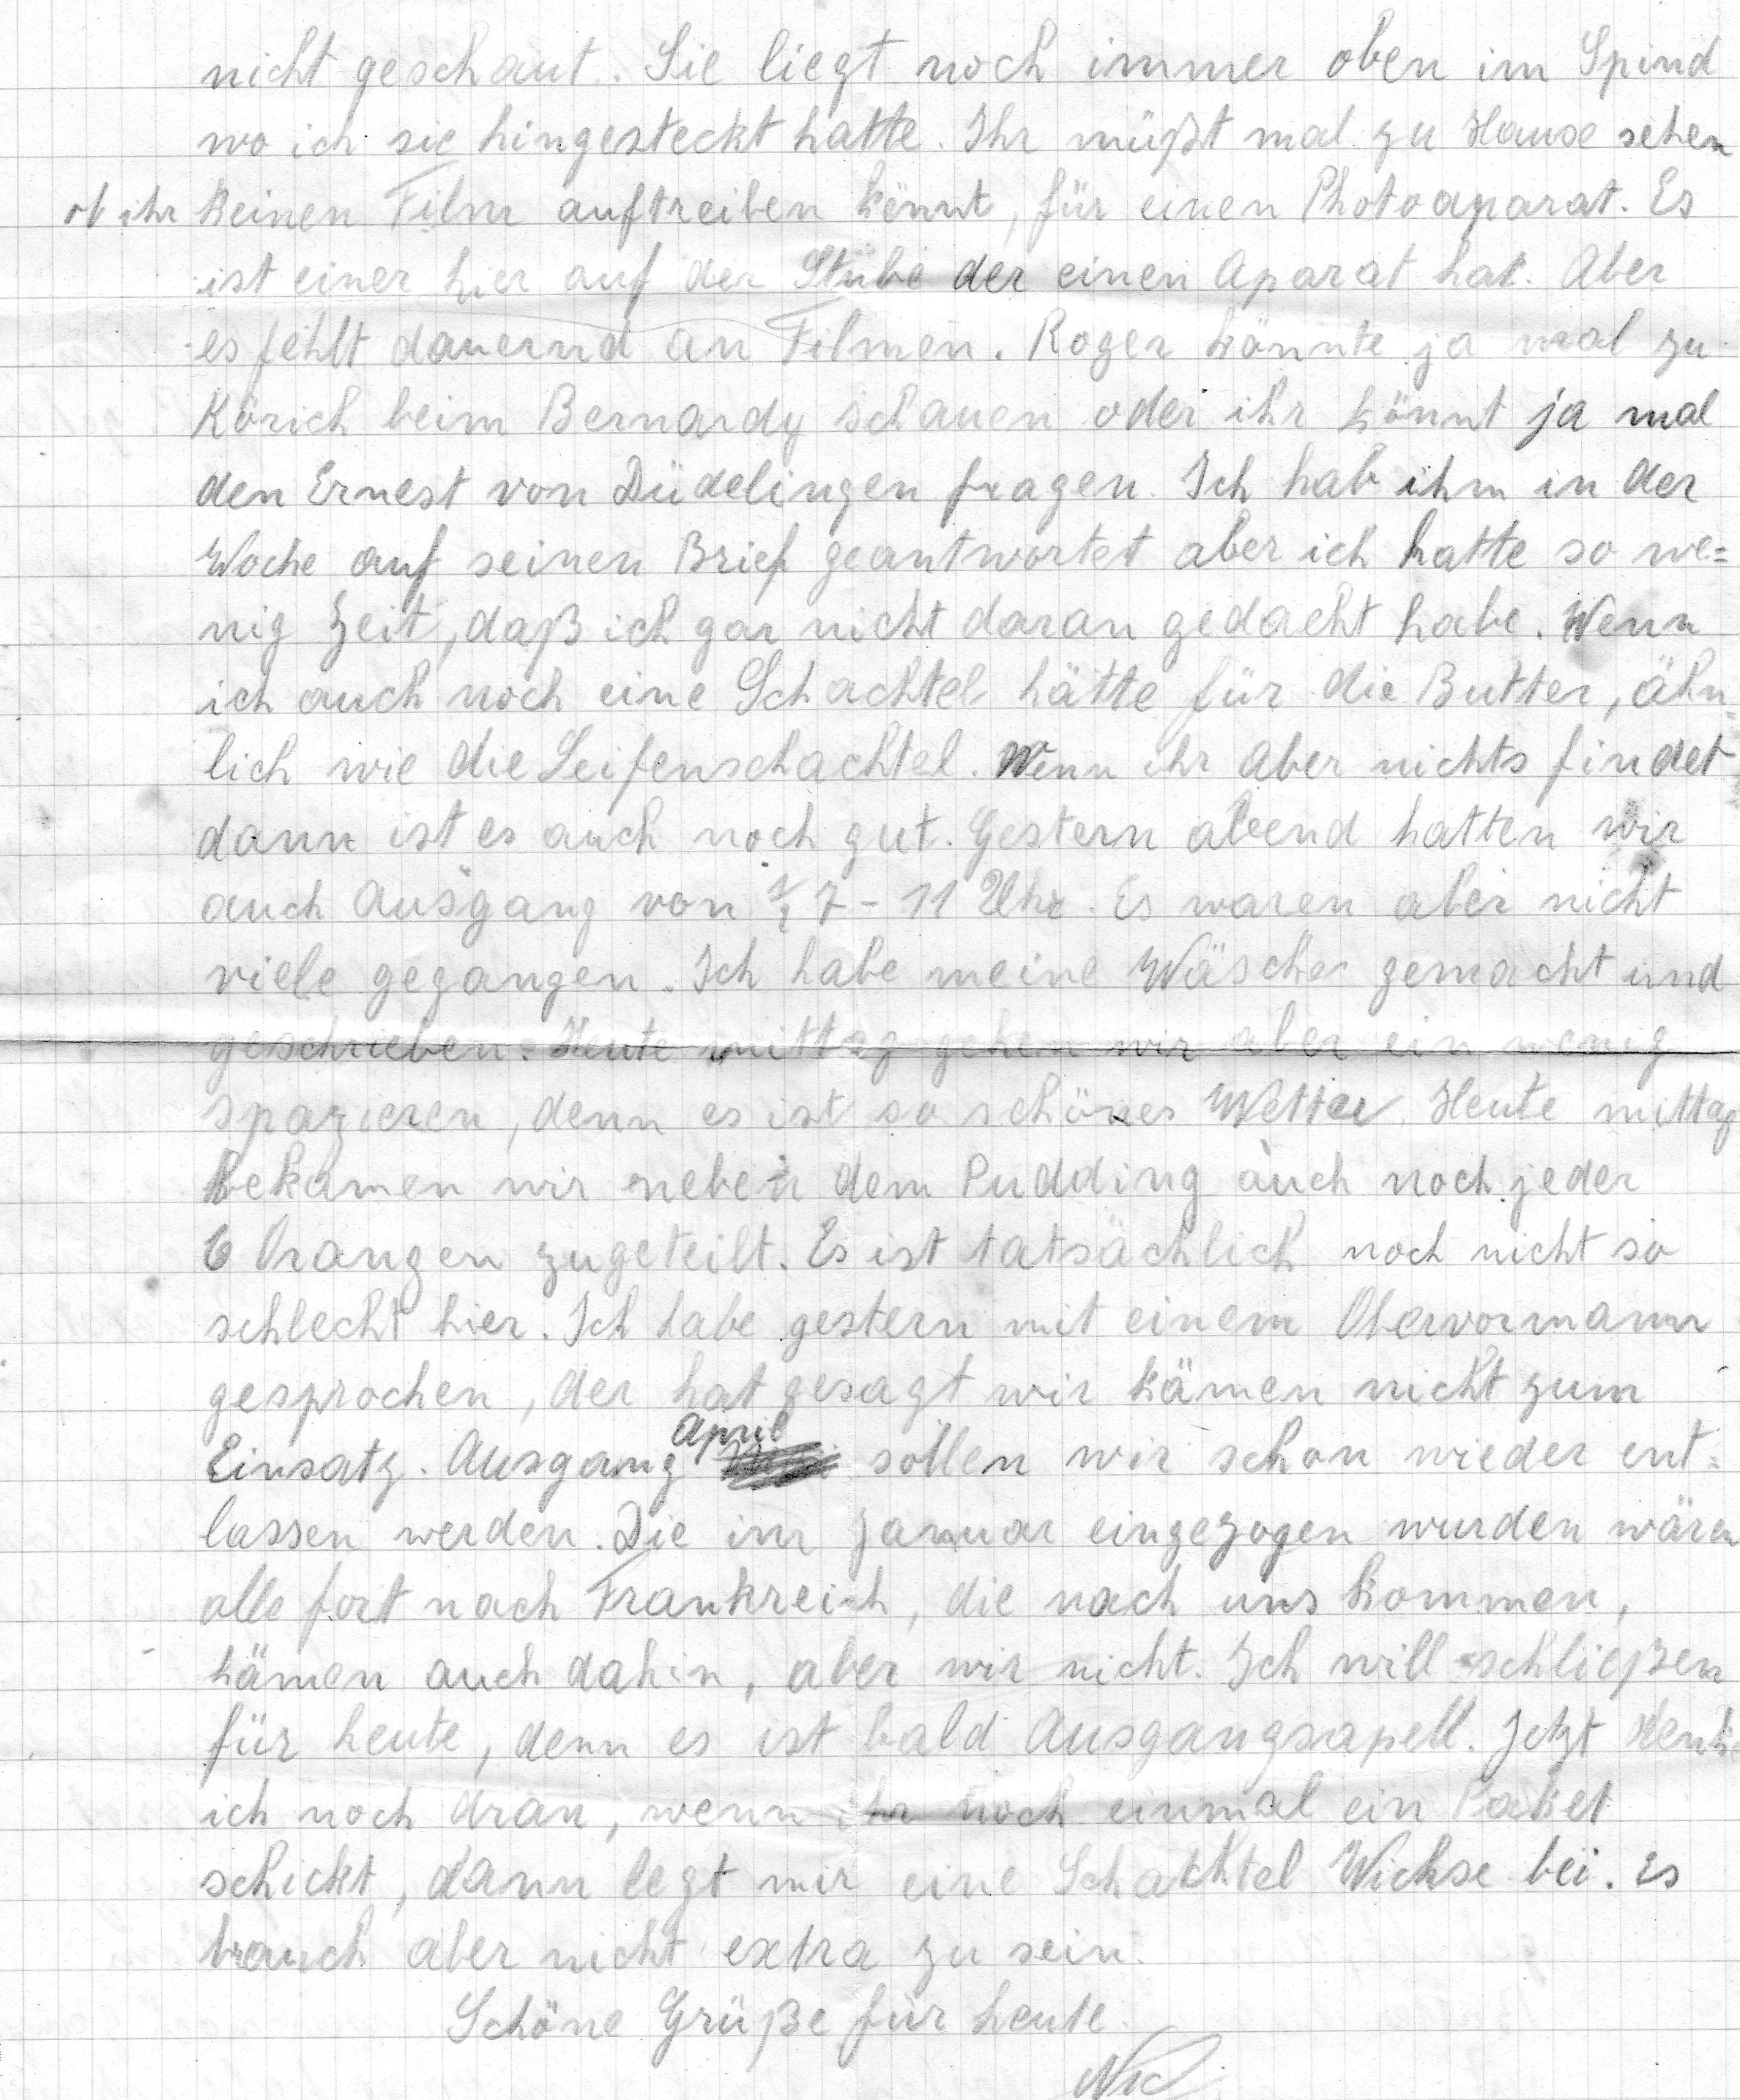 nicht geschaut. Sie liegt noch immer oben im Spind
wo ich sie hingesteckt hatte. Ihr müßt mal zu Hause sehen
ob ihr keinen Film auftreiben könnt, für einen Photoaparat. Es
ist einer hier auf der Stube der einen Aparat hat. Aber
es fehlt dauernd an Filmen. Roger könnte ja mal zu
Körich beim Bernardy schauen oder ihr könnt ja mal
den Ernest von Düdelingen fragen. Ich hab ihm in der
Woche auf seinen Brief geantwortet aber ich hatte so we=
nig Zeit, daß ich gar nicht daran gedacht habe. Wenn
ich auch noch eine Schachtel hätte für die Butter, ähn=
lich wie die Seifenschachtel. Wenn ihr aber nichts findet
dann ist es auch noch gut. Gestern abend hatten wir
auch Ausgang von ½ 7 - 11 Uhr. Es waren aber nicht
viele gegangen. Ich habe meine Wäsche gemacht und
geschrieben. Heute mittag gehen wir aber ein wenig
spazieren, denn es ist so schönes Wetter. Heute mittag
bekamen wir neben dem Pudding auch noch jeder
6 Orangen zugeteilt. Es ist tatsächlich noch nicht so
schlecht hier. Ich habe gestern mit einem Obervormann
gesprochen, der hat gesagt wir kämen nicht zum
Einsatz. Ausgang April sollen wir schon wieder ent=
lassen werden. Die im Januar eingezogen wurden wären
alle fort nach Frankreich, die nach uns kommen,
kämen auch dahin, aber wir nicht. Ich will schließen
für heute, denn es ist bald Ausgangsapell. Jetzt denke
ich noch dran, wenn ihr noch einmal ein Paket
schickt, dann legt mir eine Schachtel Wichse bei. Es
brauch aber nicht extra zu sein.
Schöne Grüße für heute.
Nic